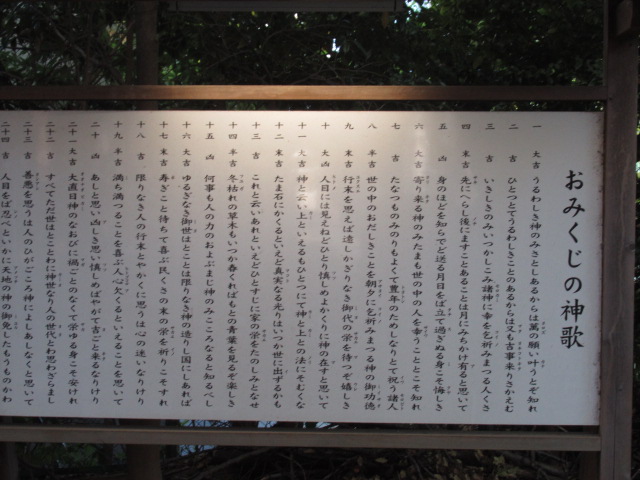 おみくじの神歌
一 大吉 うるわしき神のみさとしあるからは萬の願い叶うとぞ知れ
二 吉 ひとつとてうるわしきことのあるからは又も吉事来りさかえむ
三 吉 いきしきのみいつかしこみ諸神に幸を祈りみまつる人くさ
四 末吉 先にへらし後にますことあることは月にみちかけ有ると思いて
五 凶 身のほどを知らでど送る月日をば立て過ぎぬる身こそ悔しき
六 大吉 寄り来る神のみたまも世の中の人を幸うこととこそ知れ
七 吉 たなつものみのりもよくて豊年のためしなりとて祝う諸人
八 半吉 世の中のおだしきことを朝夕に乞祈みまつる神の御功徳
九 末吉 行末を思えば遠しかぎりなき御代の栄を待つぞ嬉しき
十 大凶 人目には見えねどひとり慎しめよかくりに神の在すと思いて
十一 大吉 神と云い上といえるもひとつにて神と上との法にそむくな
十二 末吉 たま石にかくるといえど真実なる光りはいつか世に出ずるかも
十三 吉 これと云いあれといえどひとすじに家の栄をたのしみとなせ
十四 半吉 冬枯れの草木もいつか春くればもとの青葉を見るぞ楽しき
十五 凶 何事も人の力のおよぶまじ神のみこころなると知るべし
十六 大吉 ゆるぎなき御世はとことは限りなき神の造りし国にしあれば
十七 末吉 寿ぎこと待ちて喜ぶ民くさの末の栄を祈りこそすれ
十八 吉 限りなき人の行末とやかくに思うは心の迷いなりけり
十九 半吉 満ち満つることを喜ぶ人心欠くるといえることを思いて
二十 凶 あしと思い凶しき思い慎しめばやがて吉ごと来るなりけり
二十一 大吉 大直日神のなおびに禍ごとのなくて栄ゆる身こそ安けれ
二十二 吉 すべてただ世はとことわに神世なり人の世代とわ思わざらまし
二十三 吉 善悪を思うは人のひがごころ神によしあしなくと思いて
二十四 吉 人目をば忍べといかに天地の神の御免したもうものかわ